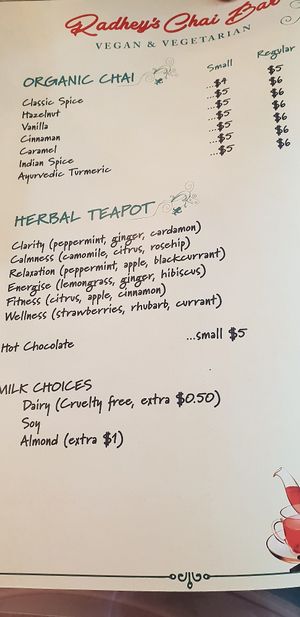 Radhey's Chai Bar
VEGAN & VEGETARIAN
ORGANIC CHAI Small Regular
Classic Spice ...$4 $5
Hazelnut ...$5 $6
Vanilla ...$5 $6
Cinnaman ...$5 $6
Caramel ...$5 $6
Indian Spice ...$5 $6
Ayurvedic Turmeric ...$5 $6
HERBAL TEAPOT
Clarity (peppermint, ginger, cardamon)
Calmness (camomile, citrus, rosehip)
Relaxation (peppermint, apple, blackcurrant)
Energise (lemongrass, ginger, hibiscus)
Fitness (citrus, apple, cinnamon)
Wellness (strawberries, rhubarb, currant)
Hot Chocolate ...small $5
MILK CHOICES
Dairy (Cruelty free, extra $0.50)
Soy
Almond (extra $1)